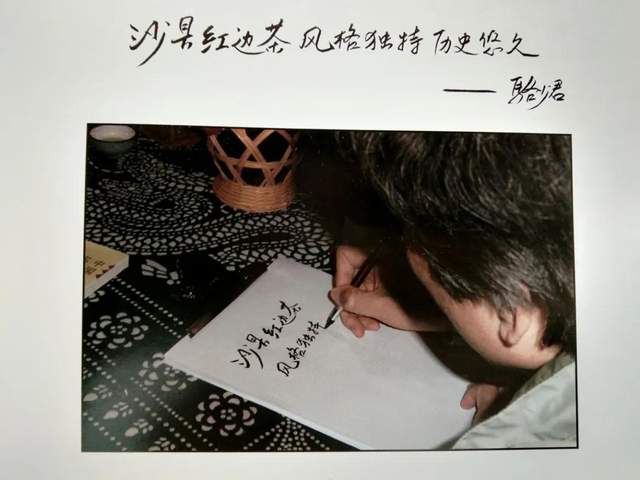 沙县红边茶 风格独特 历史悠久
—— 骆少君
沙县红边茶
风格独特